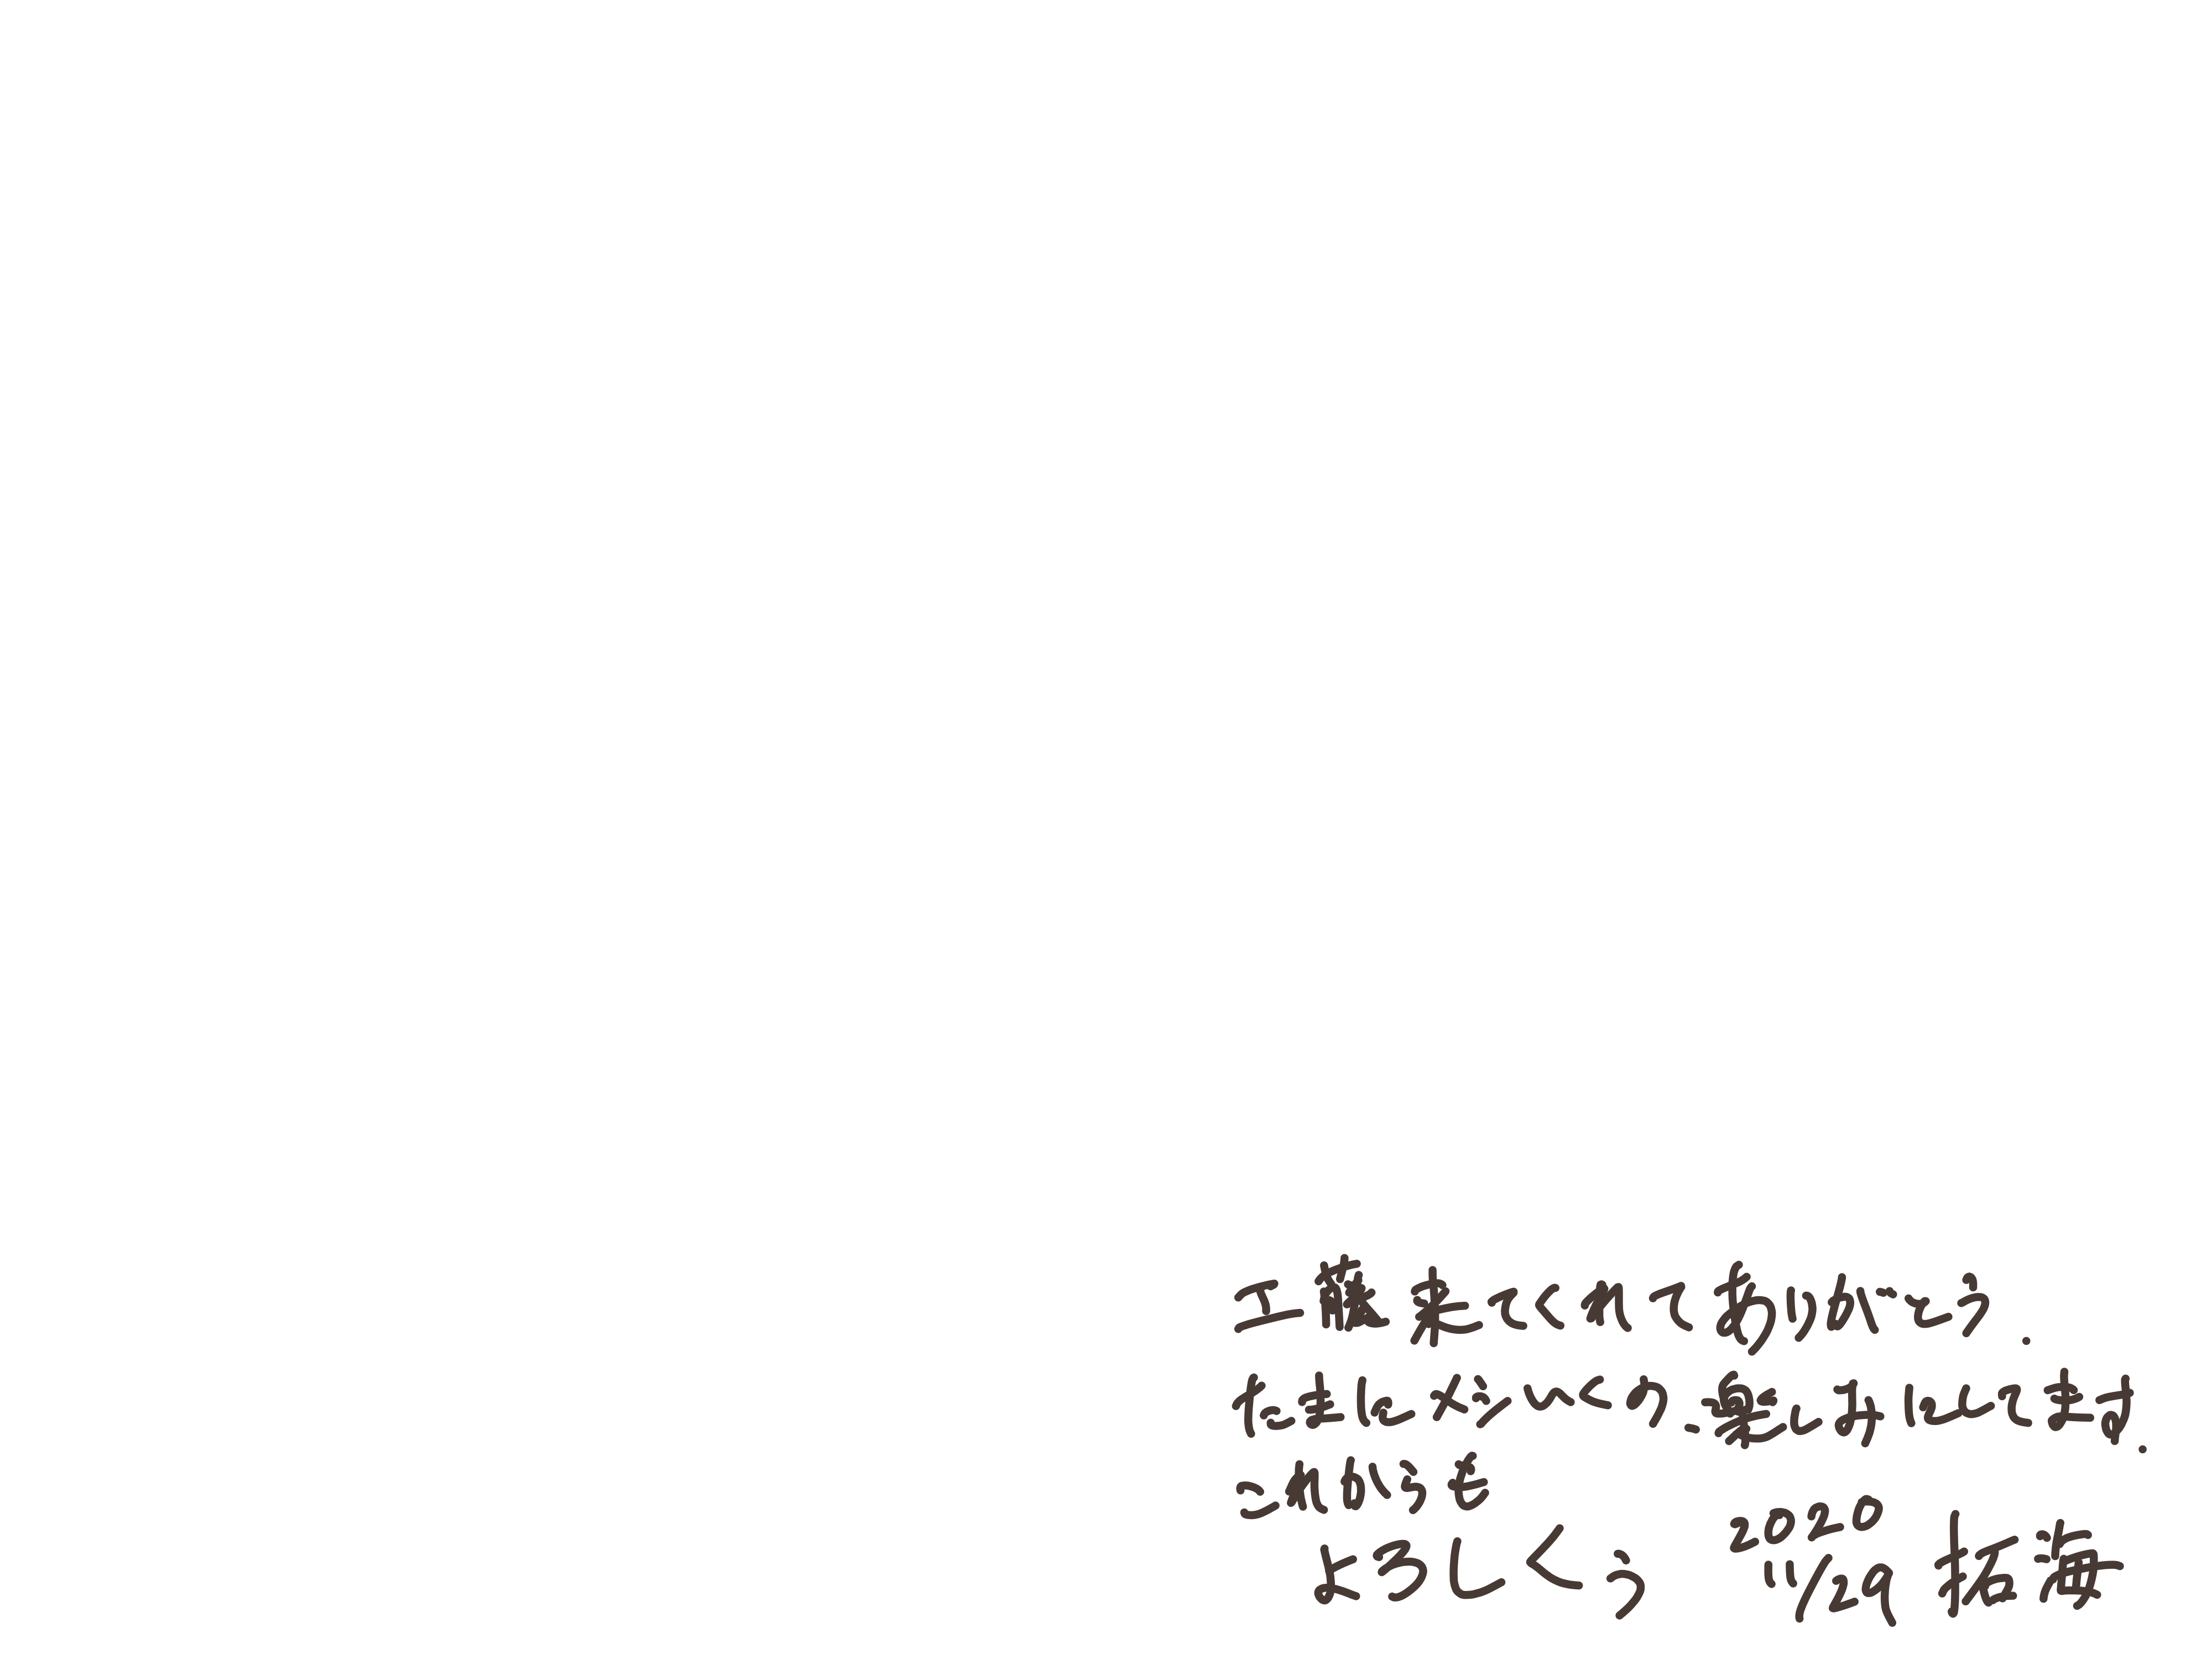 工藤 来てくれてありがとう.
たまにメシいくの、楽しみにしてます.
これからも
よろしくう
2020
11/29 拓海